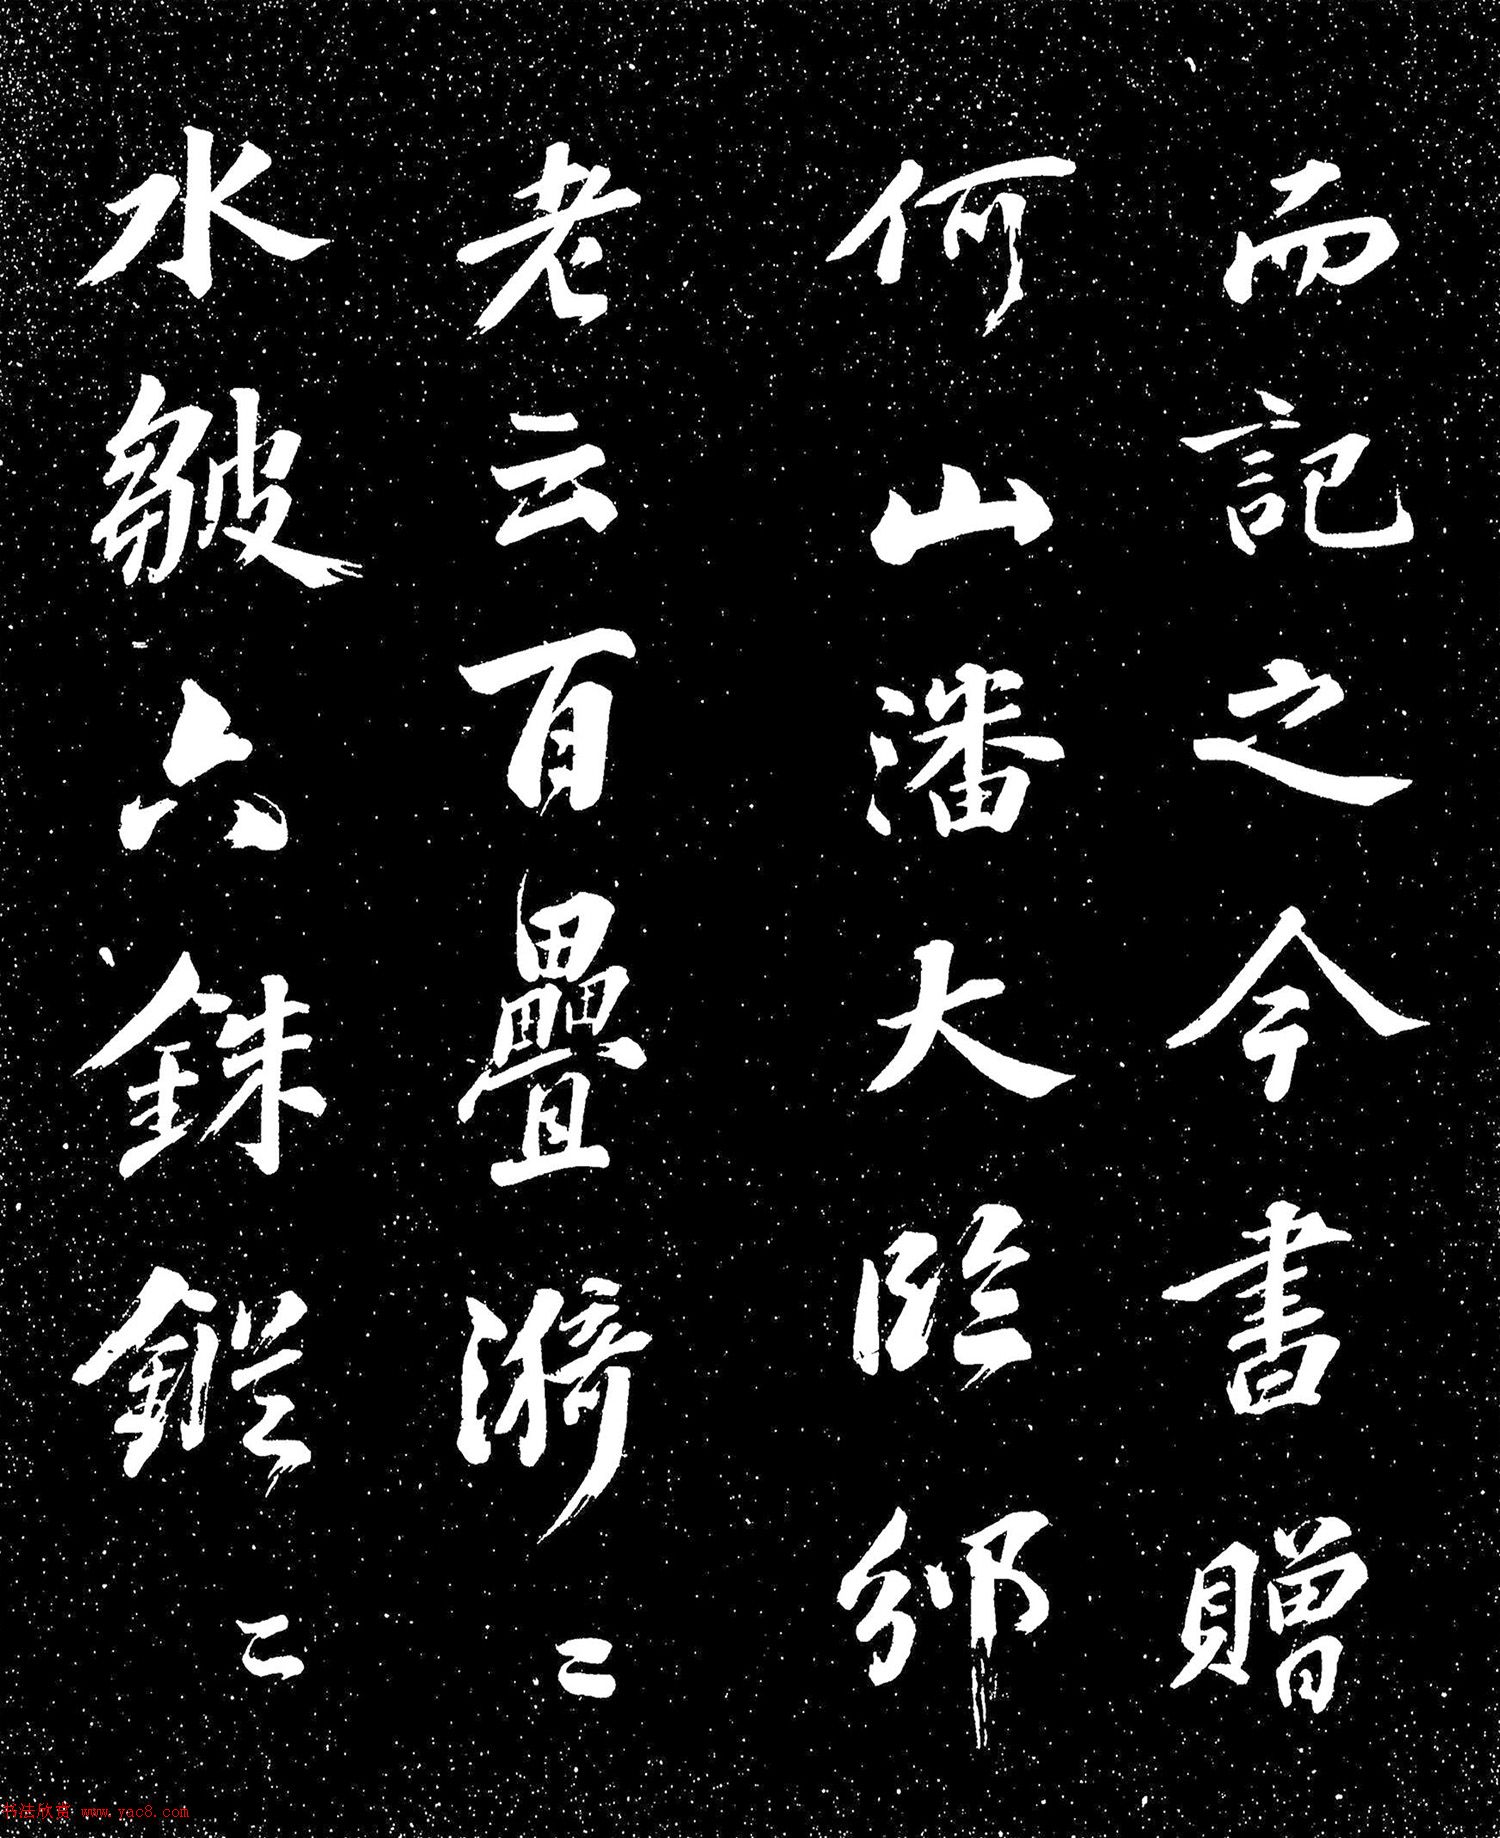 而記之今書贈
何山潘大臨邠
老云百疊漪々
水皺六銖鏦々
书法欣赏 www.yac8.com